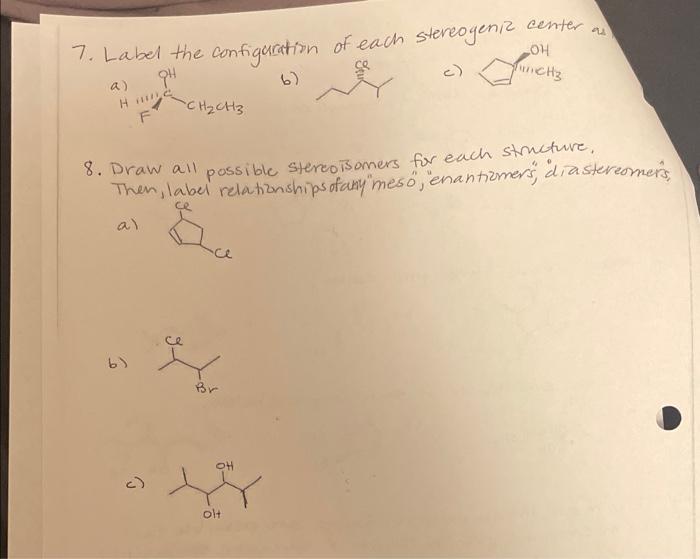 7. Label the configuration of each stereogenic center as
a) OH H C F CH2CH3
b) Cl
c) OH CH3
8. Draw all possible stereoisomers for each structure.
Then, label relationships of any "meso", "enantiomers", "diastereomers,
a) Cl Cl
b) Cl Br
c) OH OH